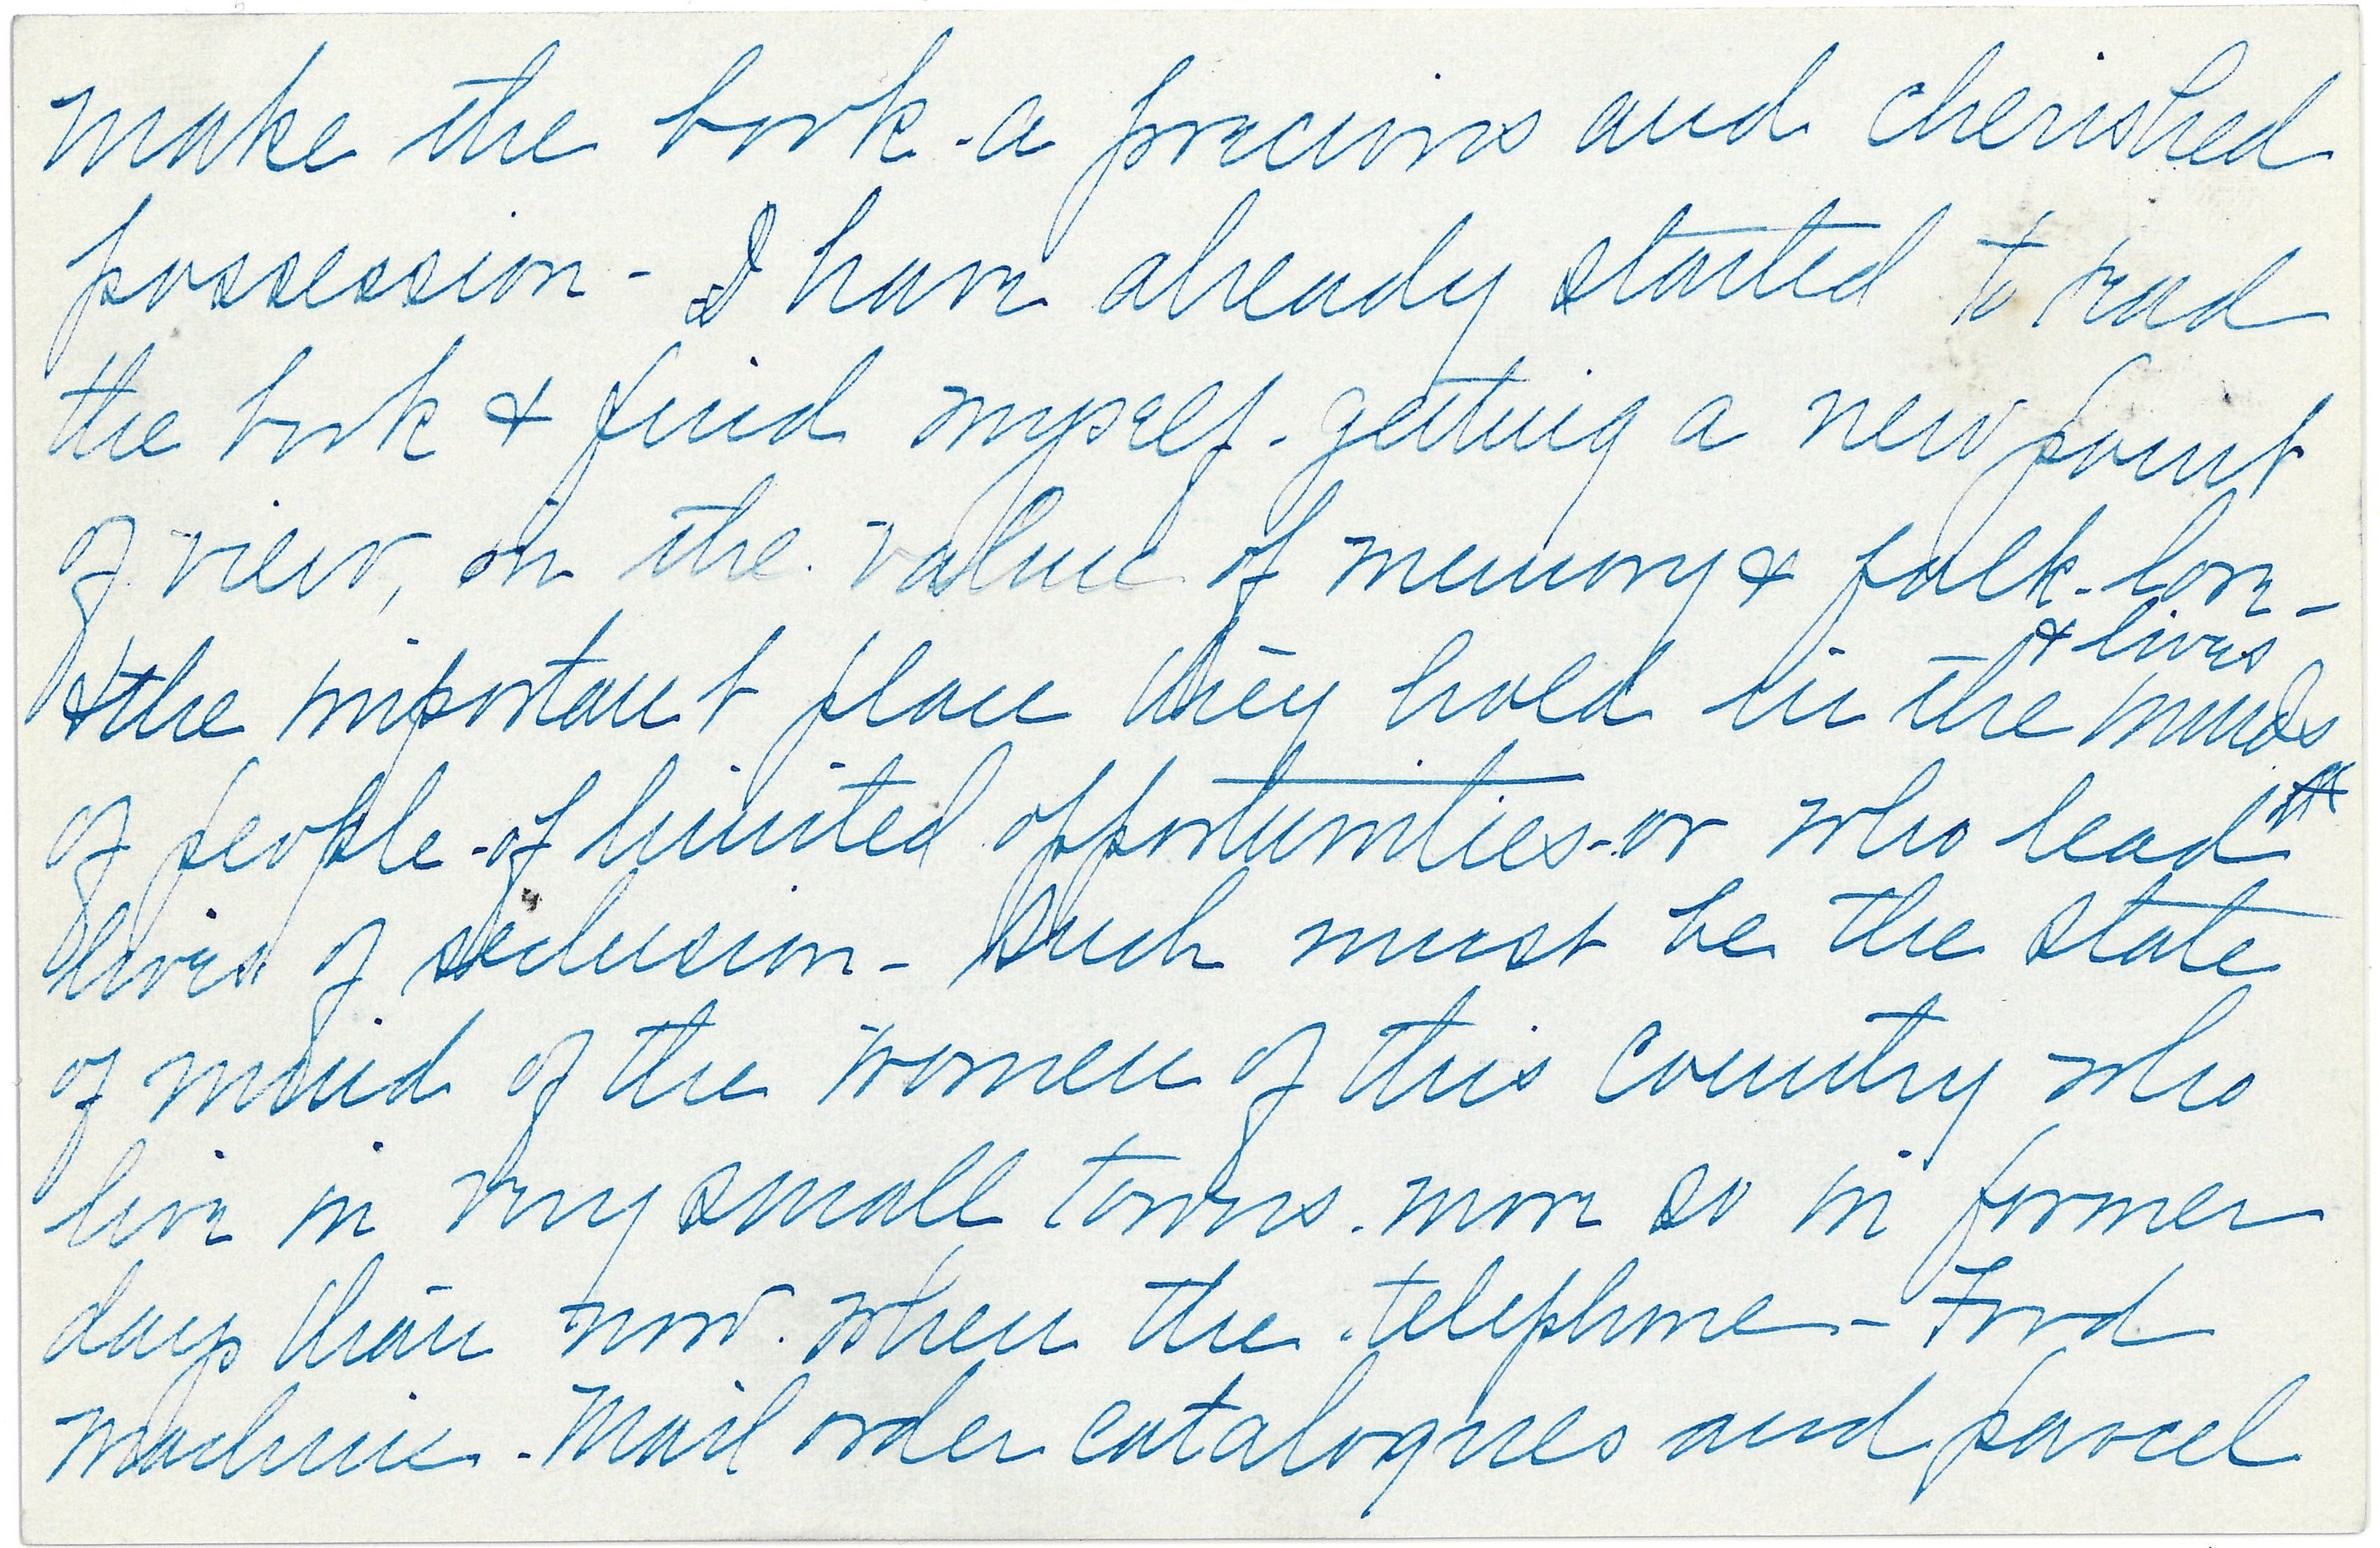 make the book - a precious and cherished
possession - I have already started to read
the book & find myself - getting a new point
of view, on the value of memory & folk-lore -
& lives
& the important place they hold in the minds
of people - of limited opportunities - or who lead
lives of seclusion - Such must be the state
of mind of the women of this country who
live in very small towns - more so in former
days than now - when the telephone - Ford
Machine - Mail order catalogues and parcel